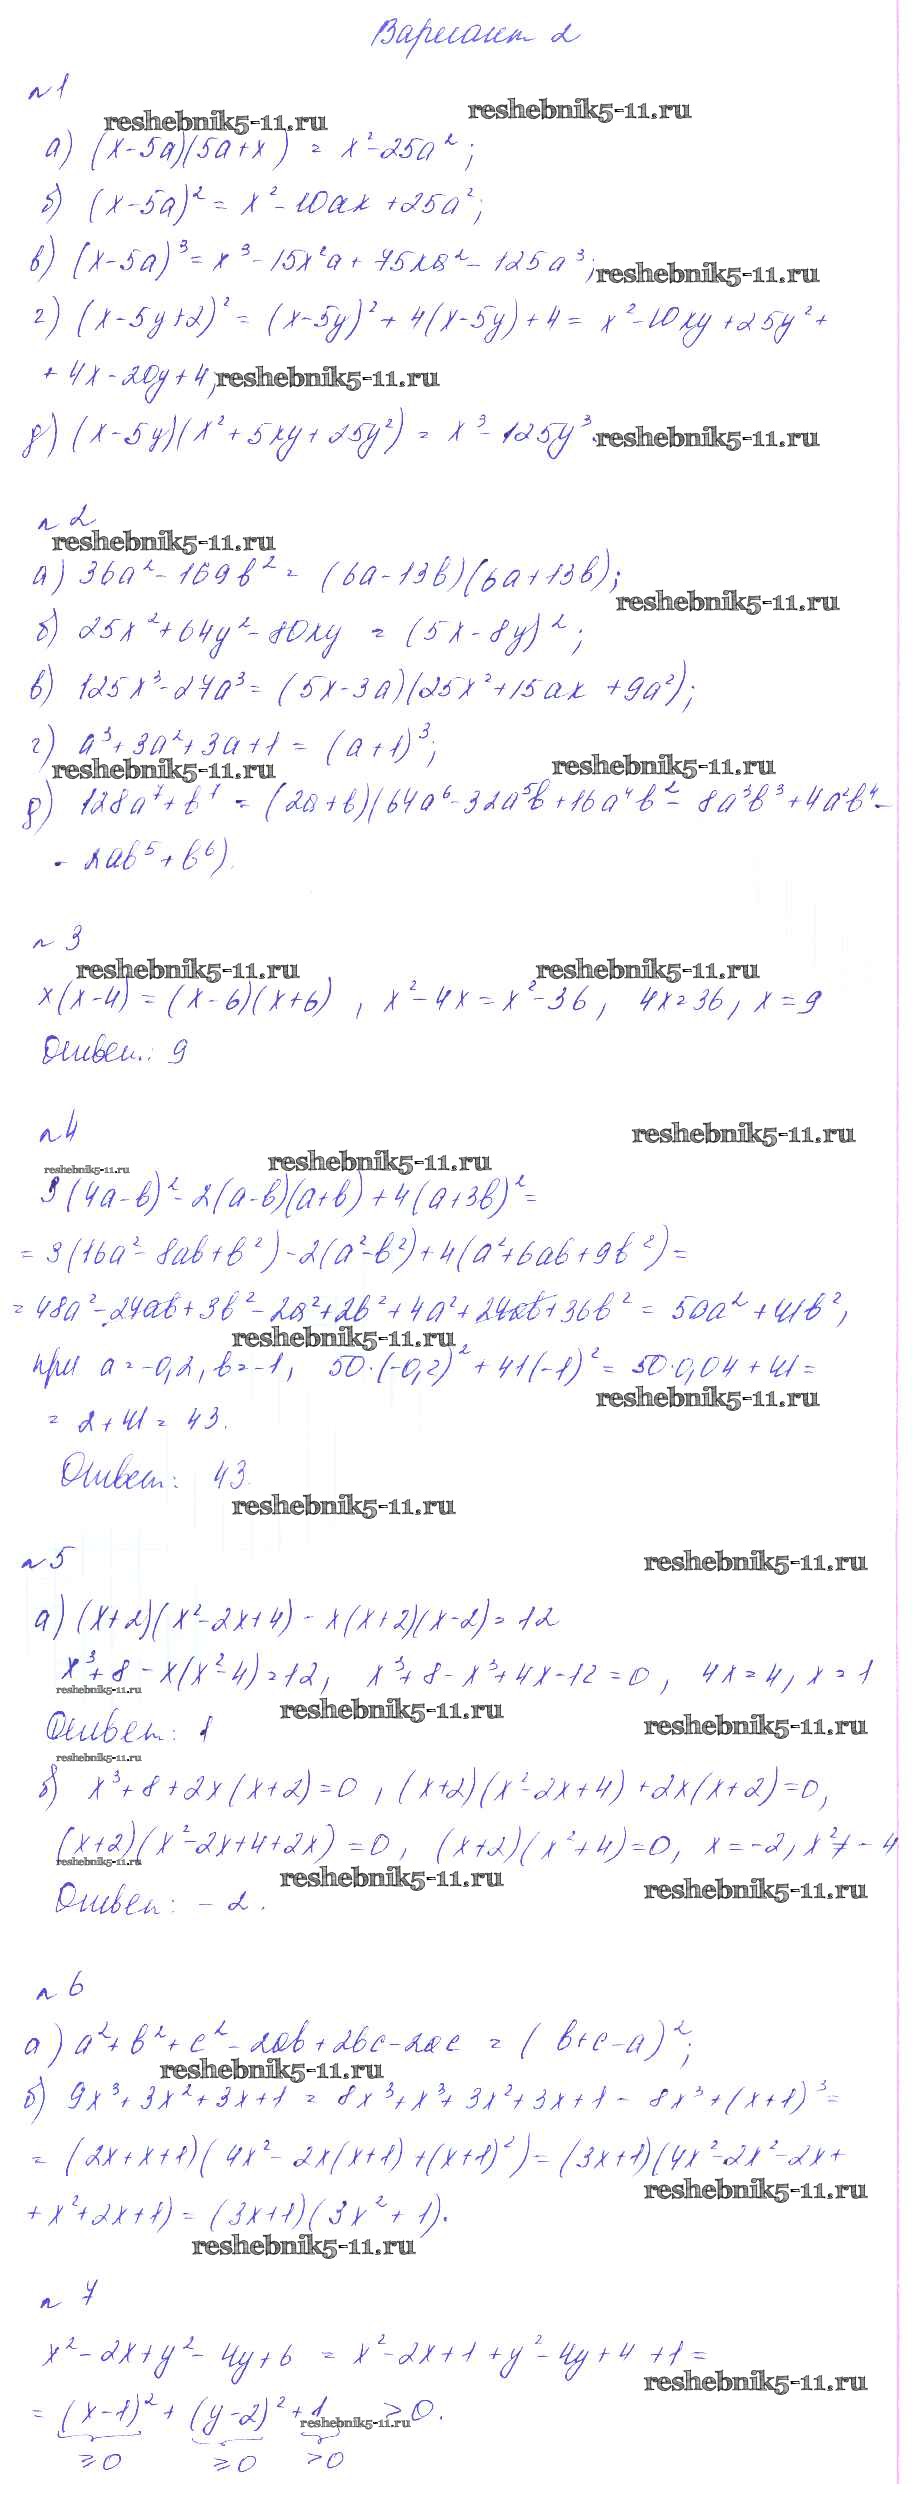 Вариант 2
№1
reshebnik5-11.ru reshebnik5-11.ru
а) (x-5a)(5a+x) = x²-25a²;
б) (x-5a)² = x²-10ax+25a²;
в) (x-5a)³ = x³-15x²a+75xa²-125a³; reshebnik5-11.ru
г) (x-5y+2)² = (x-5y)²+4(x-5y)+4 = x²-10xy+25y²+
+4x-20y+4; reshebnik5-11.ru
д) (x-5y)(x²+5xy+25y²) = x³-125y³. reshebnik5-11.ru
№2
reshebnik5-11.ru
а) 36a²-169b² = (6a-13b)(6a+13b);
reshebnik5-11.ru
б) 25x²+64y²-80xy = (5x-8y)²;
в) 125x³-27a³ = (5x-3a)(25x²+15ax+9a²);
г) a³+3a²+3a+1 = (a+1)³;
reshebnik5-11.ru reshebnik5-11.ru
д) 128a⁷+b⁷ = (2a+b)(64a⁶-32a⁵b+16a⁴b²-8a³b³+4a²b⁴-
-2ab⁵+b⁶).
№3
reshebnik5-11.ru reshebnik5-11.ru
x(x-4) = (x-6)(x+6), x²-4x=x²-36, 4x=36, x=9
Ответ: 9
№4
reshebnik5-11.ru
reshebnik5-11.ru reshebnik5-11.ru
3(4a-b)²-2(a-b)(a+b)+4(a+3b)²=
=3(16a²-8ab+b²)-2(a²-b²)+4(a²+6ab+9b²)=
=48a²-24ab+3b²-2a²+2b²+4a²+24ab+36b² = 50a²+41b²,
reshebnik5-11.ru
при a=-0,2, b=-1, 50·(-0,2)²+41(-1)² = 50·0,04+41=
reshebnik5-11.ru
=2+41=43.
Ответ: 43.
reshebnik5-11.ru
№5
reshebnik5-11.ru
а) (x+2)(x²-2x+4)-x(x+2)(x-2)=12
x³+8-x(x²-4)=12, x³+8-x³+4x-12=0, 4x=4, x=1
reshebnik5-11.ru reshebnik5-11.ru
Ответ: 1 reshebnik5-11.ru
reshebnik5-11.ru
б) x³+8+2x(x+2)=0, (x+2)(x²-2x+4)+2x(x+2)=0,
(x+2)(x²-2x+4+2x)=0, (x+2)(x²+4)=0, x=-2, x²≠-4
reshebnik5-11.ru reshebnik5-11.ru reshebnik5-11.ru
Ответ: -2.
№6
а) a²+b²+c²-2ab+2bc-2ac = (b+c-a)²;
reshebnik5-11.ru
б) 9x³+3x²+3x+1 = 8x³+x³+3x²+3x+1 = 8x³+(x+1)³=
=(2x+x+1)(4x²-2x(x+1)+(x+1)²)=(3x+1)(4x²-2x²-2x+
reshebnik5-11.ru
+x²+2x+1)=(3x+1)(3x²+1).
reshebnik5-11.ru
№7
x²-2x+y²-4y+6 = x²-2x+1+y²-4y+4+1=
reshebnik5-11.ru
=(x-1)²+(y-2)²+1 >0.
reshebnik5-11.ru
≥0 ≥0 >0